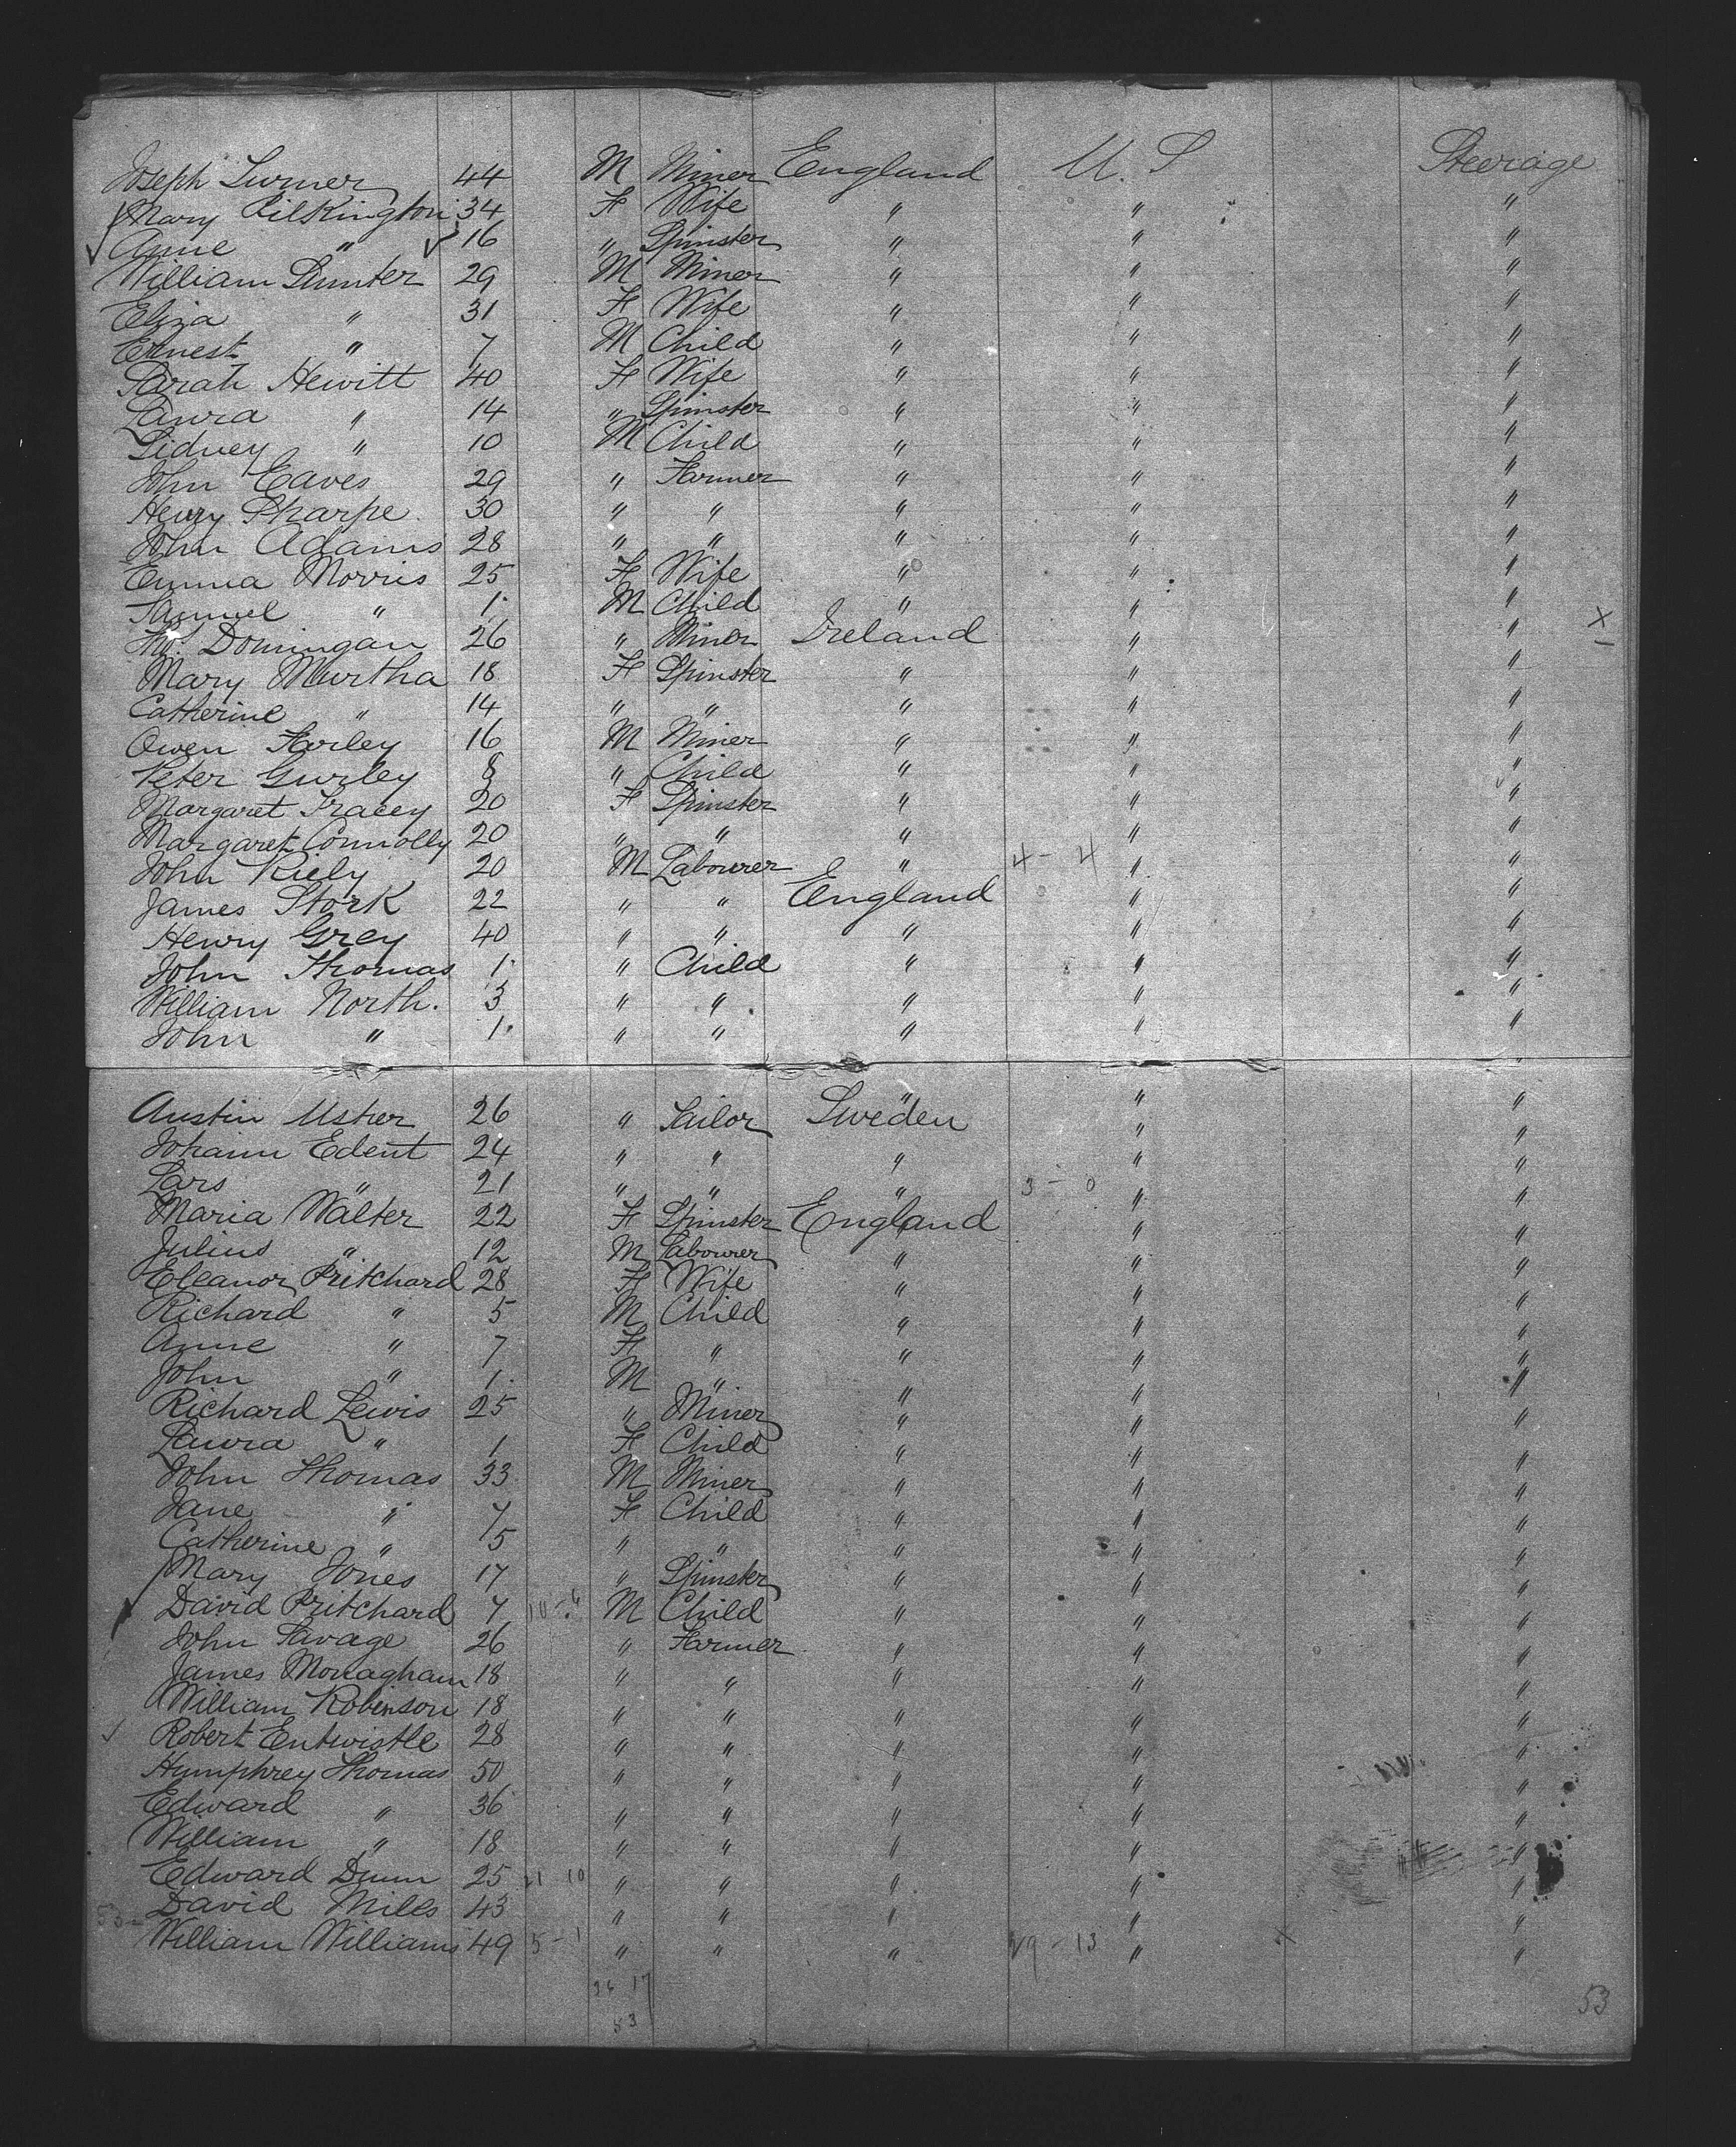 Joseph Turner 44 M Miner England U.S Steerage
Mary Pilkington 34 F Wife " " "
Anne " 16 " Spinster " " "
William Hunter 29 M Miner " " "
Eliza " 31 F Wife " " "
Ernest " 7 M Child " " "
Sarah Hewitt 40 F Wife " " "
Laura " 14 " Spinster " " "
Sidney " 10 M Child " " "
John Eaves 29 " Farmer " " "
Henry Sharpe 30 " " " " "
John Adams 28 " " " " "
Emma Morris 25 F Wife " " "
Samuel " 1. M Child " " "
26 " Miner Ireland " " X
Mary Murtha 18 F Spinster " " "
Catherine " 14 " " " " "
Owen Farley 16 M Miner " " "
Peter Gurley 8 " Child " " "
Margaret Tracey 20 F Spinster " " "
Margaret Connolly 20 " " " " "
John Riely 20 M Labourer " 4 - 4 " "
James Stork 22 " " England " "
Henry Grey 40 " " " " "
John Thomas 1. " Child " " "
William North. 3 " " " " "
John " 1. " " " " "
Austin Usher 26 " Sailor Sweden " "
Johann Edent 24 " " " " "
Lars " 21 " " " 3 - 0 " "
Maria Walter 22 F Spinster England " "
Julius " 12 M Labourer " " "
Eleanor Pritchard 28 F Wife " " "
Richard " 5 M Child " " "
Anne " 7 F " " " "
John " 1. M " " " "
Richard Lewis 25 " Miner " " "
Laura " 1 F Child " " "
John Thomas 33 M Miner " " "
Jane " 7 F Child " " "
Catherine " 5 " " " " "
Mary Jones 17 " Spinster " " "
David Pritchard 7 10 - 6 M Child " " "
John Savage 26 " Farmer " " "
James Monagham 18 " " " " "
William Robinson 18 " " " " "
Robert Entwistle 28 " " " " "
Humphrey Thomas 50 " " " " "
Edward " 36 " " " " "
William " 18 " " " " "
Edward Dunn 25 21 10 " " " " "
David Mills 43 " " " " "
William Williams 49 5 - 1 " " " 29 - 13 " X "
36 17
53
53